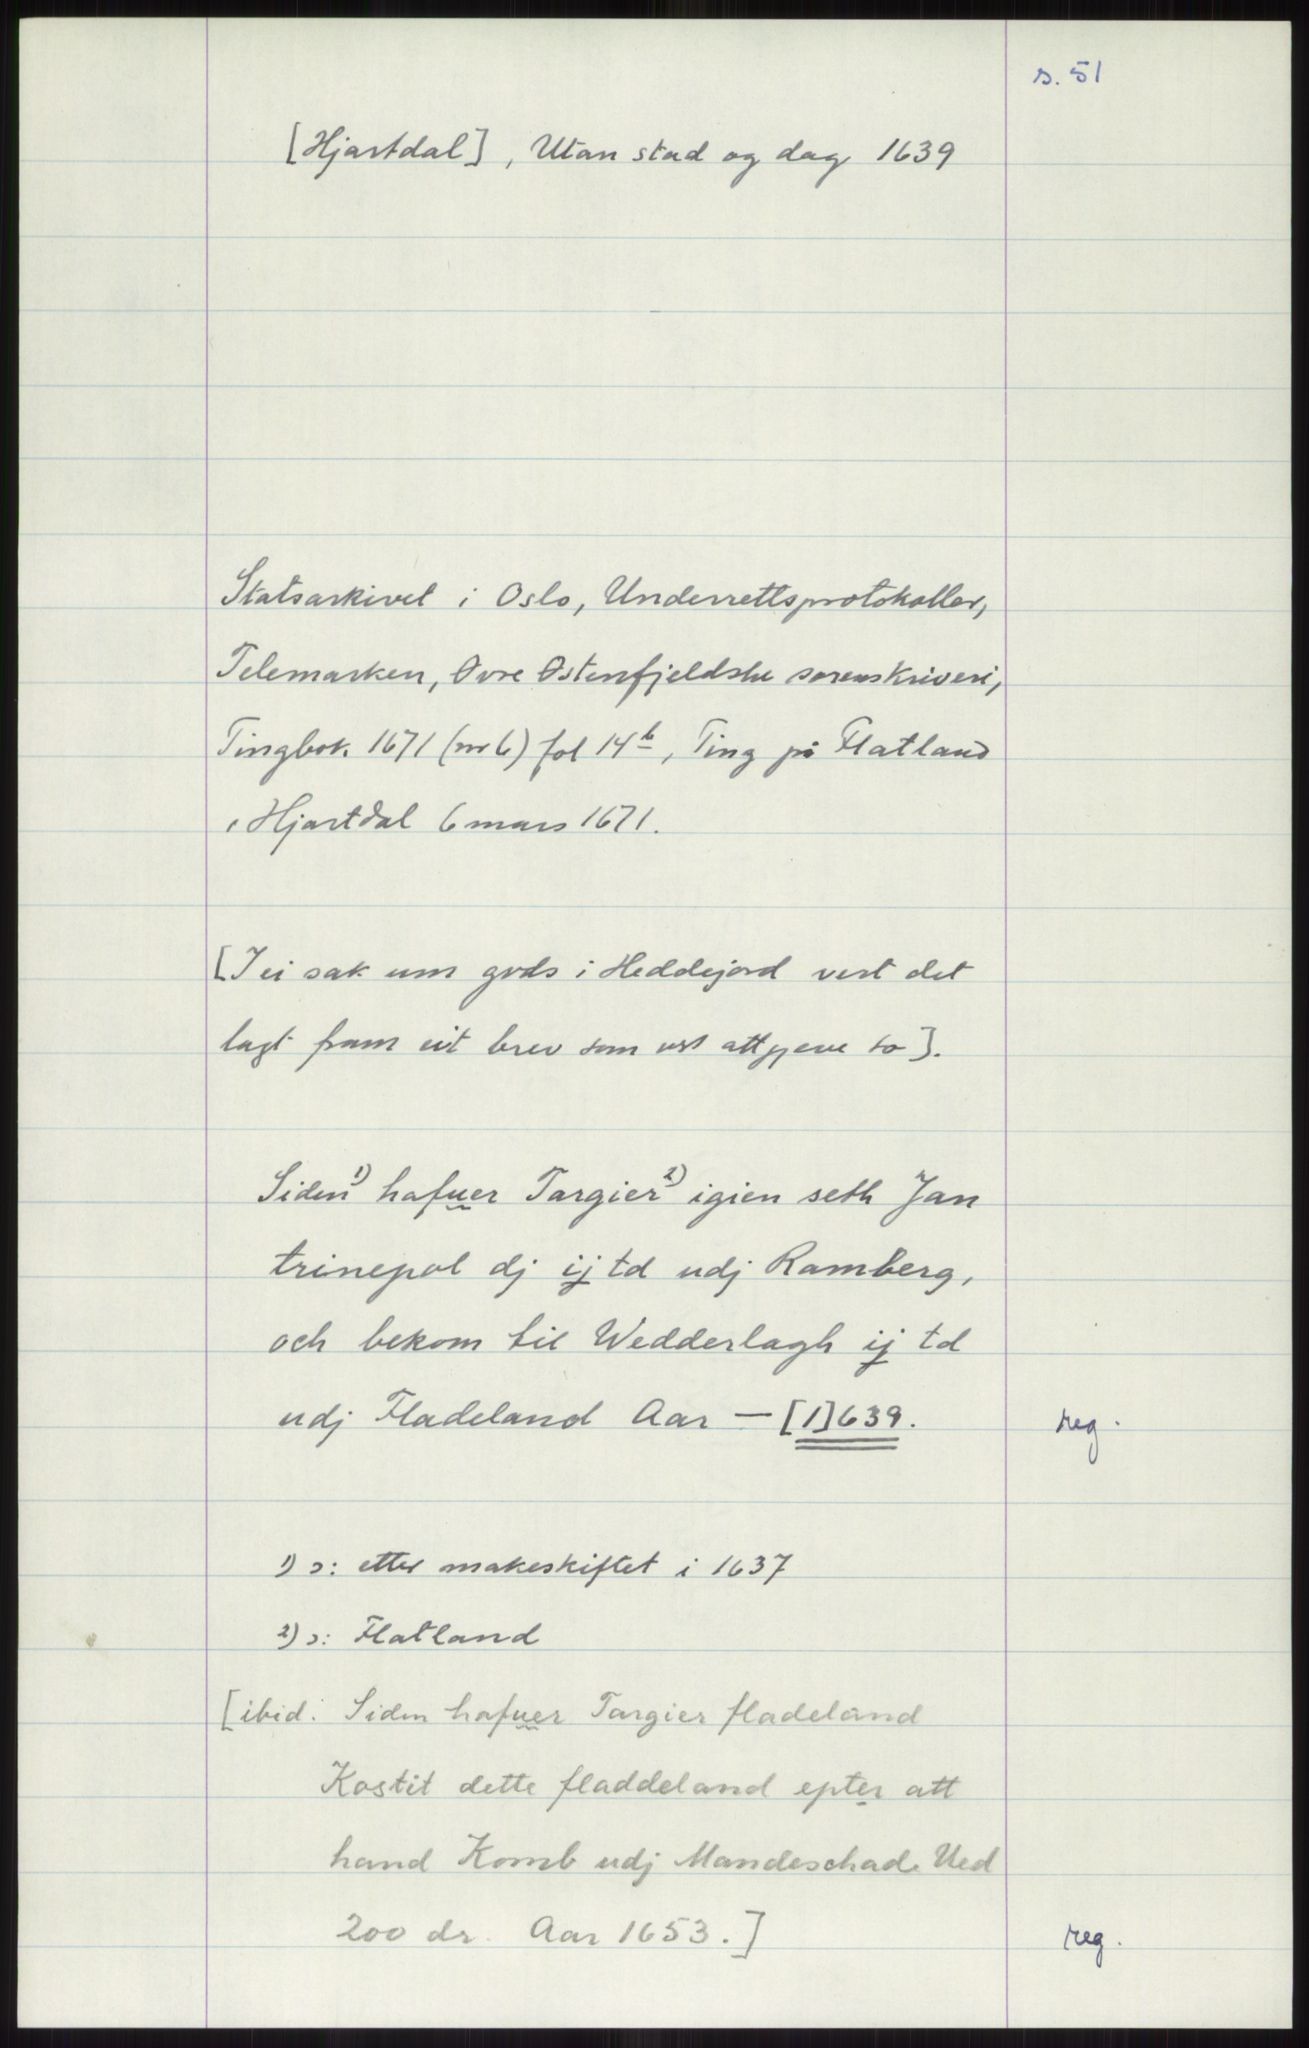 s. 51
[Hjartdal], Utan stad og dag 1639
Statsarkivet i Oslo, Underrettsprotokoller,
Telemarken, Øvre Østenfjeldske sorenskriveri,
Tingbok 1671 (nr 6) fol 14b, Ting på Flatland
i Hjartdal 6 mars 1671.
[I ei sak um gods i Heddejord vert det
lagt fram eit brev som vert attgjeve so].
Siden 1) hafuer Targier 2) igien seth Jan
trinepol dj ij td udj Ramberg,
och bekom til Wedderlagh ij td
udj Fladeland Aar — [1]639.
reg.
1) ɔ: etter makeskiftet i 1637
2) ɔ: Flatland
[ibid. Siden hafuer Targier fladeland
Kostit dette fladdeland epter att
hand Komb udj Mandeschade Ued
200 dr. Aar 1653.]
reg.